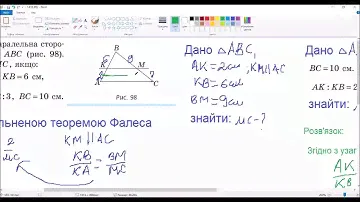 аралельна сторо-
ABC (рис. 98).
С, якщо:
KB = 6 см,
: 3, BC = 10 см.
B
M
K
A
C
Рис. 98
льненою теоремою Фалеса
KM || AC
2
MC
KB
KA
=
BM
MC
Дано △ABC,
AK = 2см, KM || AC
KB = 6см
BM = 9см
знайти: MC - ?
Дано △A
BC = 10 см.
AK : KB = 2
знайти:
Розв'язок:
Згідно з узаг
AK
KB